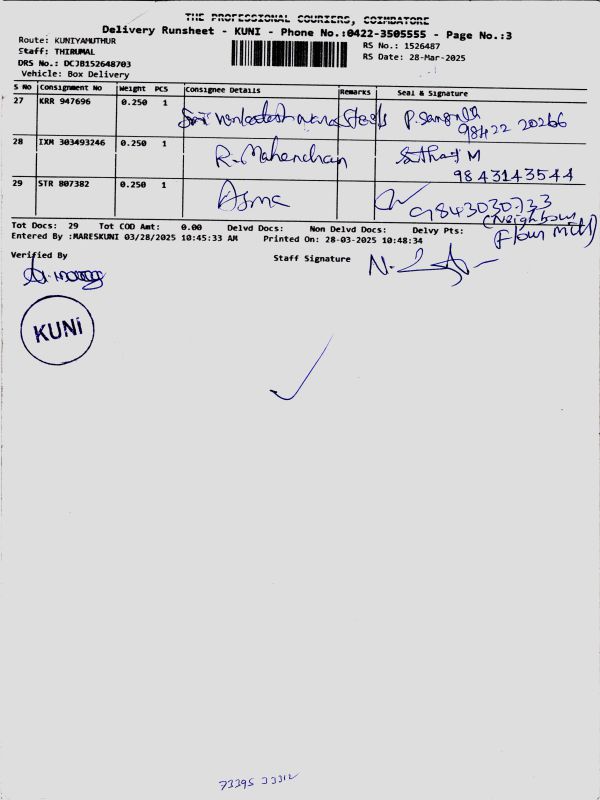 THE PROFESSIONAL COURIERS, COIMBATORE
Delivery Runsheet - KUNI - Phone No.:0422-3505555 - Page No.:3
Route: KUNIYAMUTHUR
RS No.: 1526487
Staff: THIRUMAL
RS Date: 28-Mar-2025
DRS No.: DCJB152648703
Vehicle: Box Delivery
S No Consignment No Weight PCS Consignee Details Remarks Seal & Signature
27 KRR 947696 0.250 1 Sri Venkateshwara Steels P. Sangeeth
98422 20266
28 IXM 303493246 0.250 1 R. Mahendran Sathay M
98 43143544
29 STR 807382 0.250 1 Asma
9843030733
(Neighbour
Flour Mill)
Tot Docs: 29 Tot COD Amt: 0.00 Delvd Docs: Non Delvd Docs: Delvy Pts:
Entered By :MARESKUNI 03/28/2025 10:45:33 AM Printed On: 28-03-2025 10:48:34
Verified By Staff Signature
KUNI
73395 33312